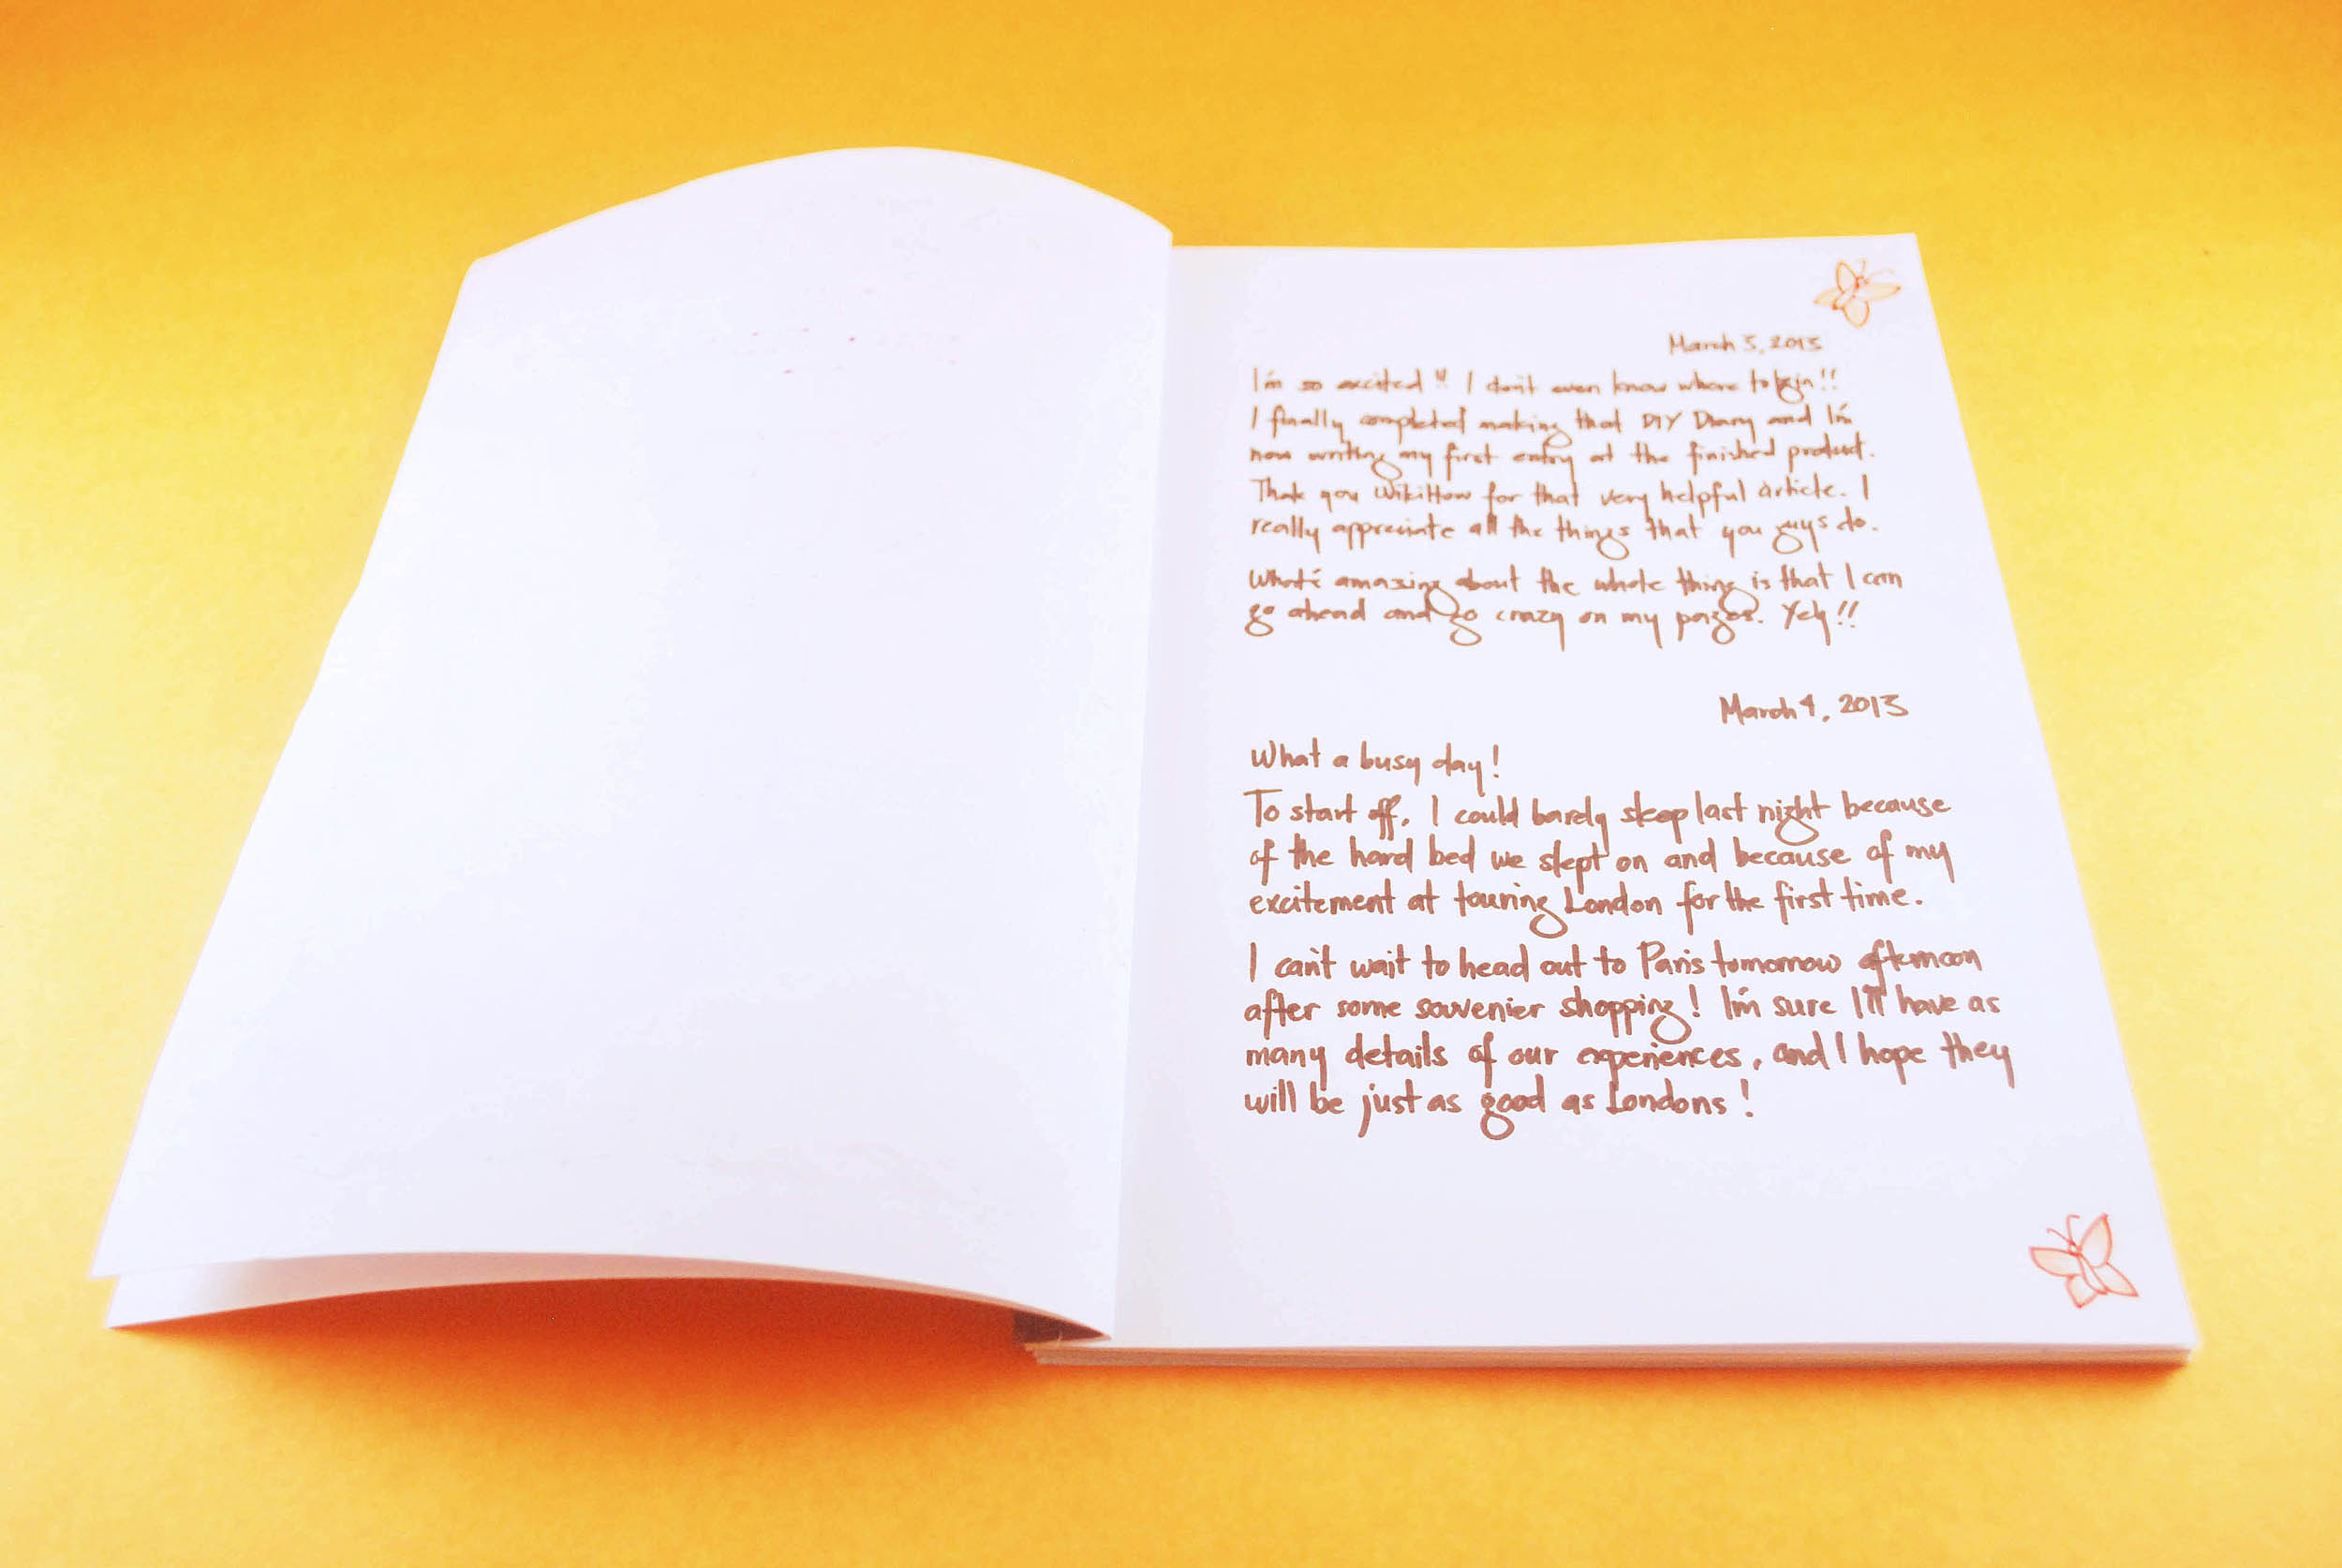 March 3, 2013
I'm so excited!! I don't even know where to begin!!
I finally completed making that DIY Diary and I'm
now writing my first entry at the finished product.
Thank you WikiHow for that very helpful article. I
really appreciate all the things that you guys do.
What's amazing about the whole thing is that I can
go ahead and go crazy on my pages. Yey!!
March 4, 2013
What a busy day!
To start off, I could barely sleep last night because
of the hard bed we slept on and because of my
excitement at touring London for the first time.
I can't wait to head out to Paris tomorrow afternoon
after some souvenier shopping! I'm sure I'll have as
many details of our experiences, and I hope they
will be just as good as Londons!